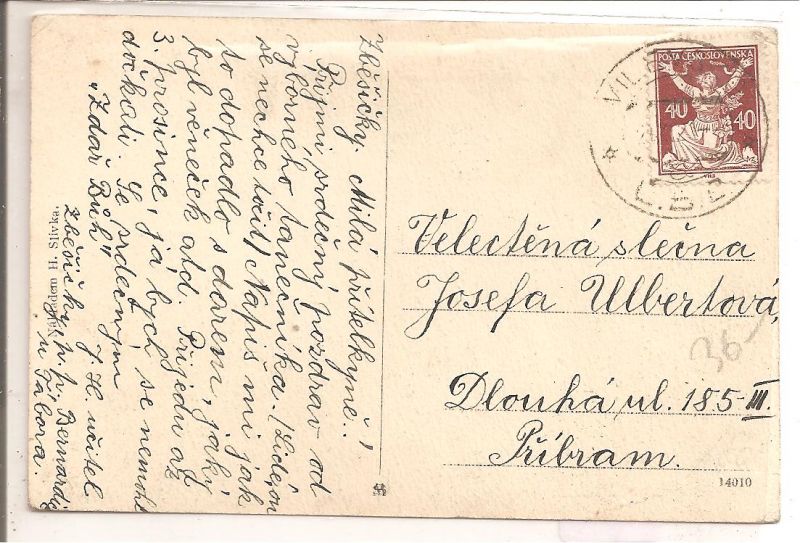 Zběšičky. Milá přítelkyně!
Přijmi srdečný pozdrav od
výborného tanečníka. (Lide, on
se nechce točit) Napiš mi jak
to dopadlo s darem, jaký
byl věneček atd. Přijedu až
3. prosince, já bych se nemohl
dočkati. Se srdečným
"Zdař Bůh"
J. H. učitel
Zběšičky, p. p. Bernardice
u Tábora.
Nákladem H. Slivka.
POŠTA ČESKOSLOVENSKÁ
40 40
Velectěná slečna
Josefa Ulbertová,
Dlouhá ul. 185-III.
Příbram.
36
14010